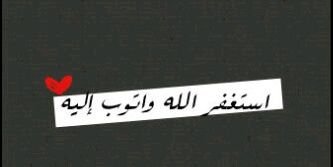 استغفر الله واتوب إليه